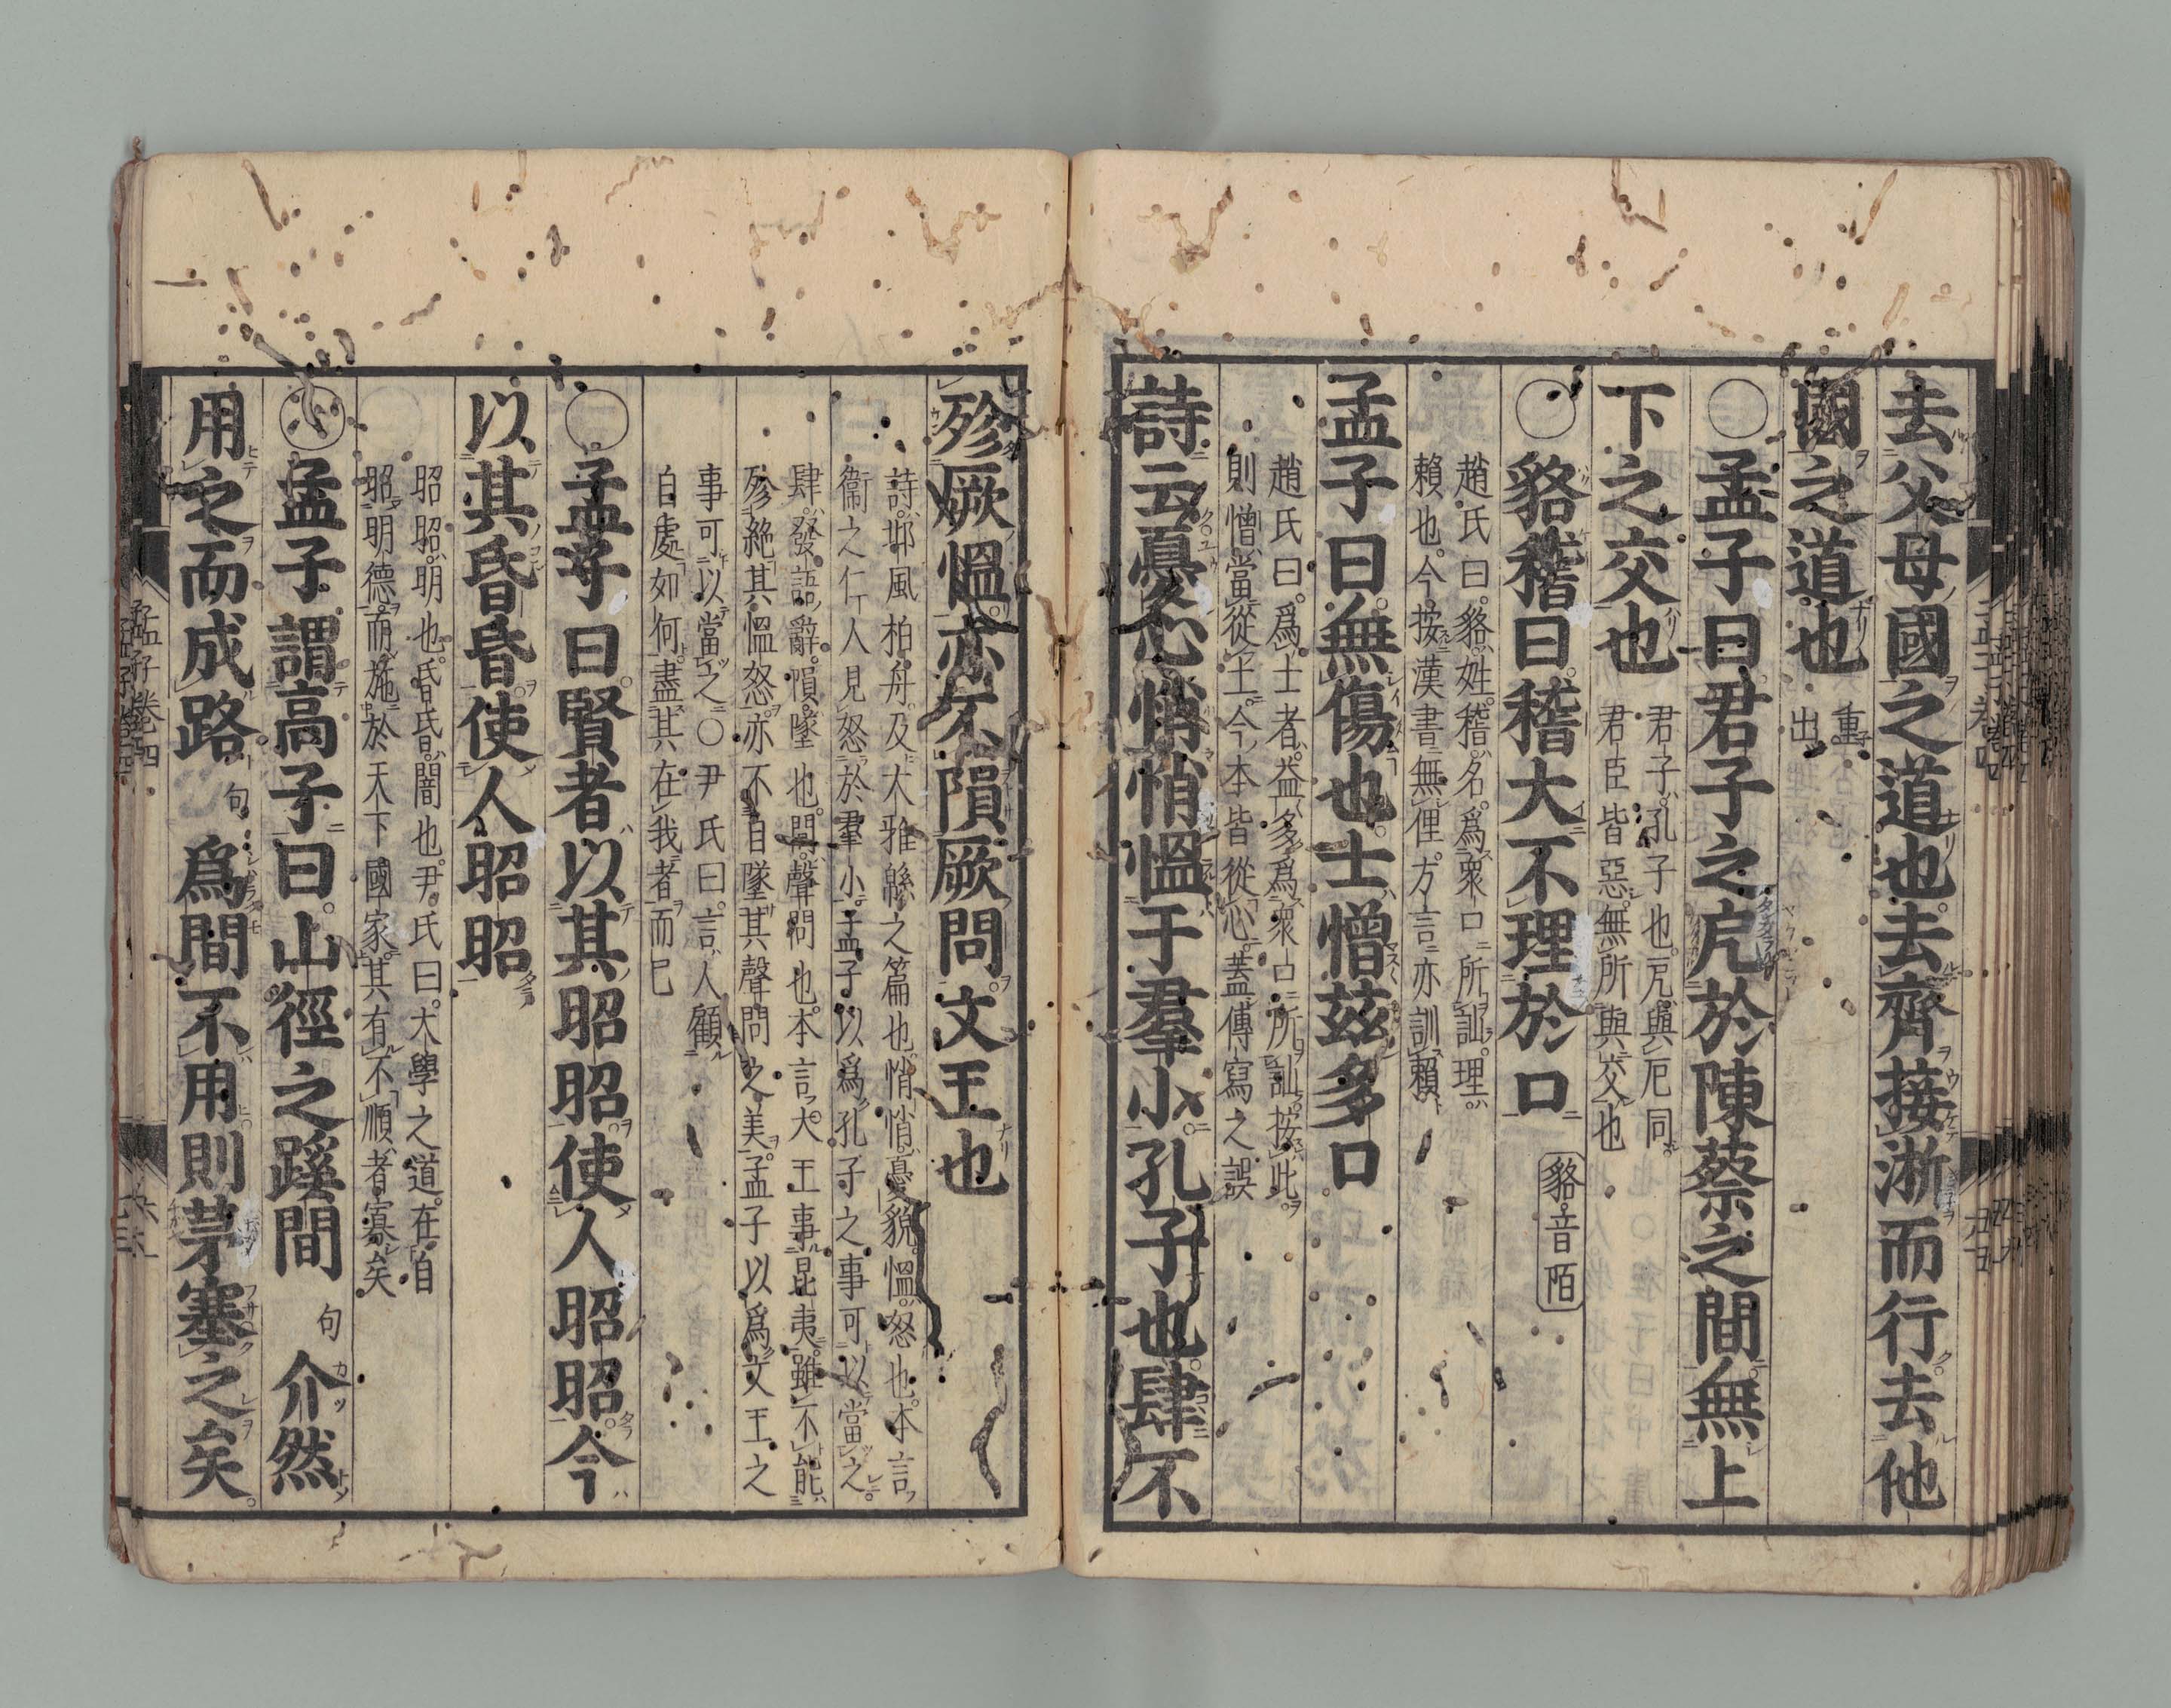 去父母國之道也。去齊接淅而行。去他
國之道也
重
出
○孟子曰。君子之戹於陳蔡之間。無上
下之交也
君子。孔子也。戹與厄同。
君臣皆惡。無所與交也
○貉稽曰。稽大不理於口
貉音陌
趙氏曰。貉姓。稽名。爲衆口所訕。理。
賴也。今按漢書無俚。方言亦訓賴
孟子曰。無傷也。士憎茲多口
趙氏曰。爲士者。益多爲衆口所訕。按此
則憎當從土。今本皆從心。蓋傳寫之誤
詩云憂心悄悄。慍于羣小。孔子也。肆不
殄厥慍。亦不隕厥問。文王也
詩。邶風柏舟。及大雅緜之篇也。悄悄憂貌。慍。怒也。本言
衞之仁人見怒於羣小。孟子以爲孔子之事可以當之。
肆。發語辭。隕。墜也。問。聲問也。本言。大王事昆夷。雖不能
殄絶其慍怒。亦不自墜其聲問之美。孟子以爲文王之
事可以當之。○尹氏曰。言人顧
自處如何。盡其在我者而已
○孟子曰。賢者以其昭昭。使人昭昭。今
以其昏昏。使人昭昭
昭昭。明也。昏昏。闇也。尹氏曰。大學之道。在自
昭明德。而施於天下國家。其有不順者寡矣
○孟子謂高子曰。山徑之蹊間
句
介然
用之而成路。
句
爲間不用。則茅塞之矣。
孟子卷四